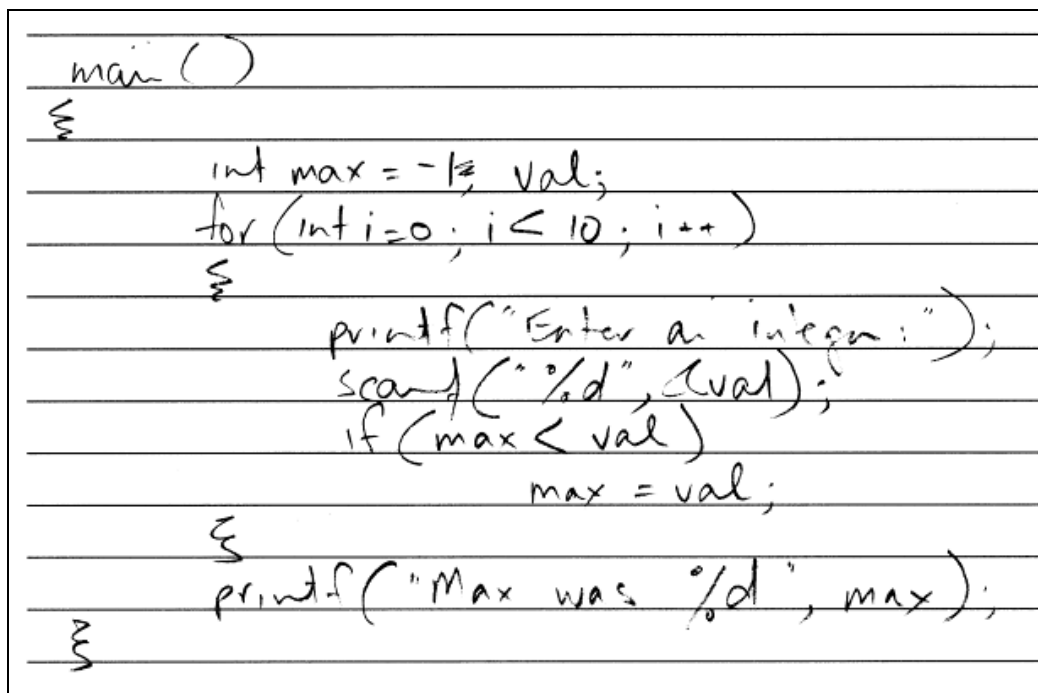 main ()
{
int max = -1, val;
for (int i=0; i < 10; i++)
{
printf("Enter an integer:");
scanf("%d", &val);
if (max < val)
max = val;
}
printf("Max was %d", max);
}